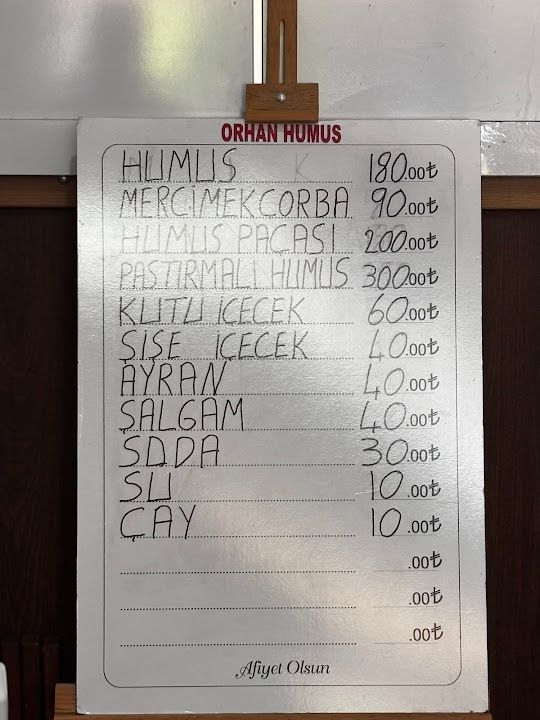 ORHAN HUMUS
HUMUS 180.00₺
MERCİMEK ÇORBA 90.00₺
HUMUS PAÇASI 200.00₺
PASTIRMALI HUMUS 300.00₺
KUTU İÇECEK 60.00₺
ŞİŞE İÇECEK 40.00₺
AYRAN 40.00₺
ŞALGAM 40.00₺
SODA 30.00₺
SU 10.00₺
ÇAY 10.00₺
.00₺
.00₺
.00₺
Afiyet Olsun